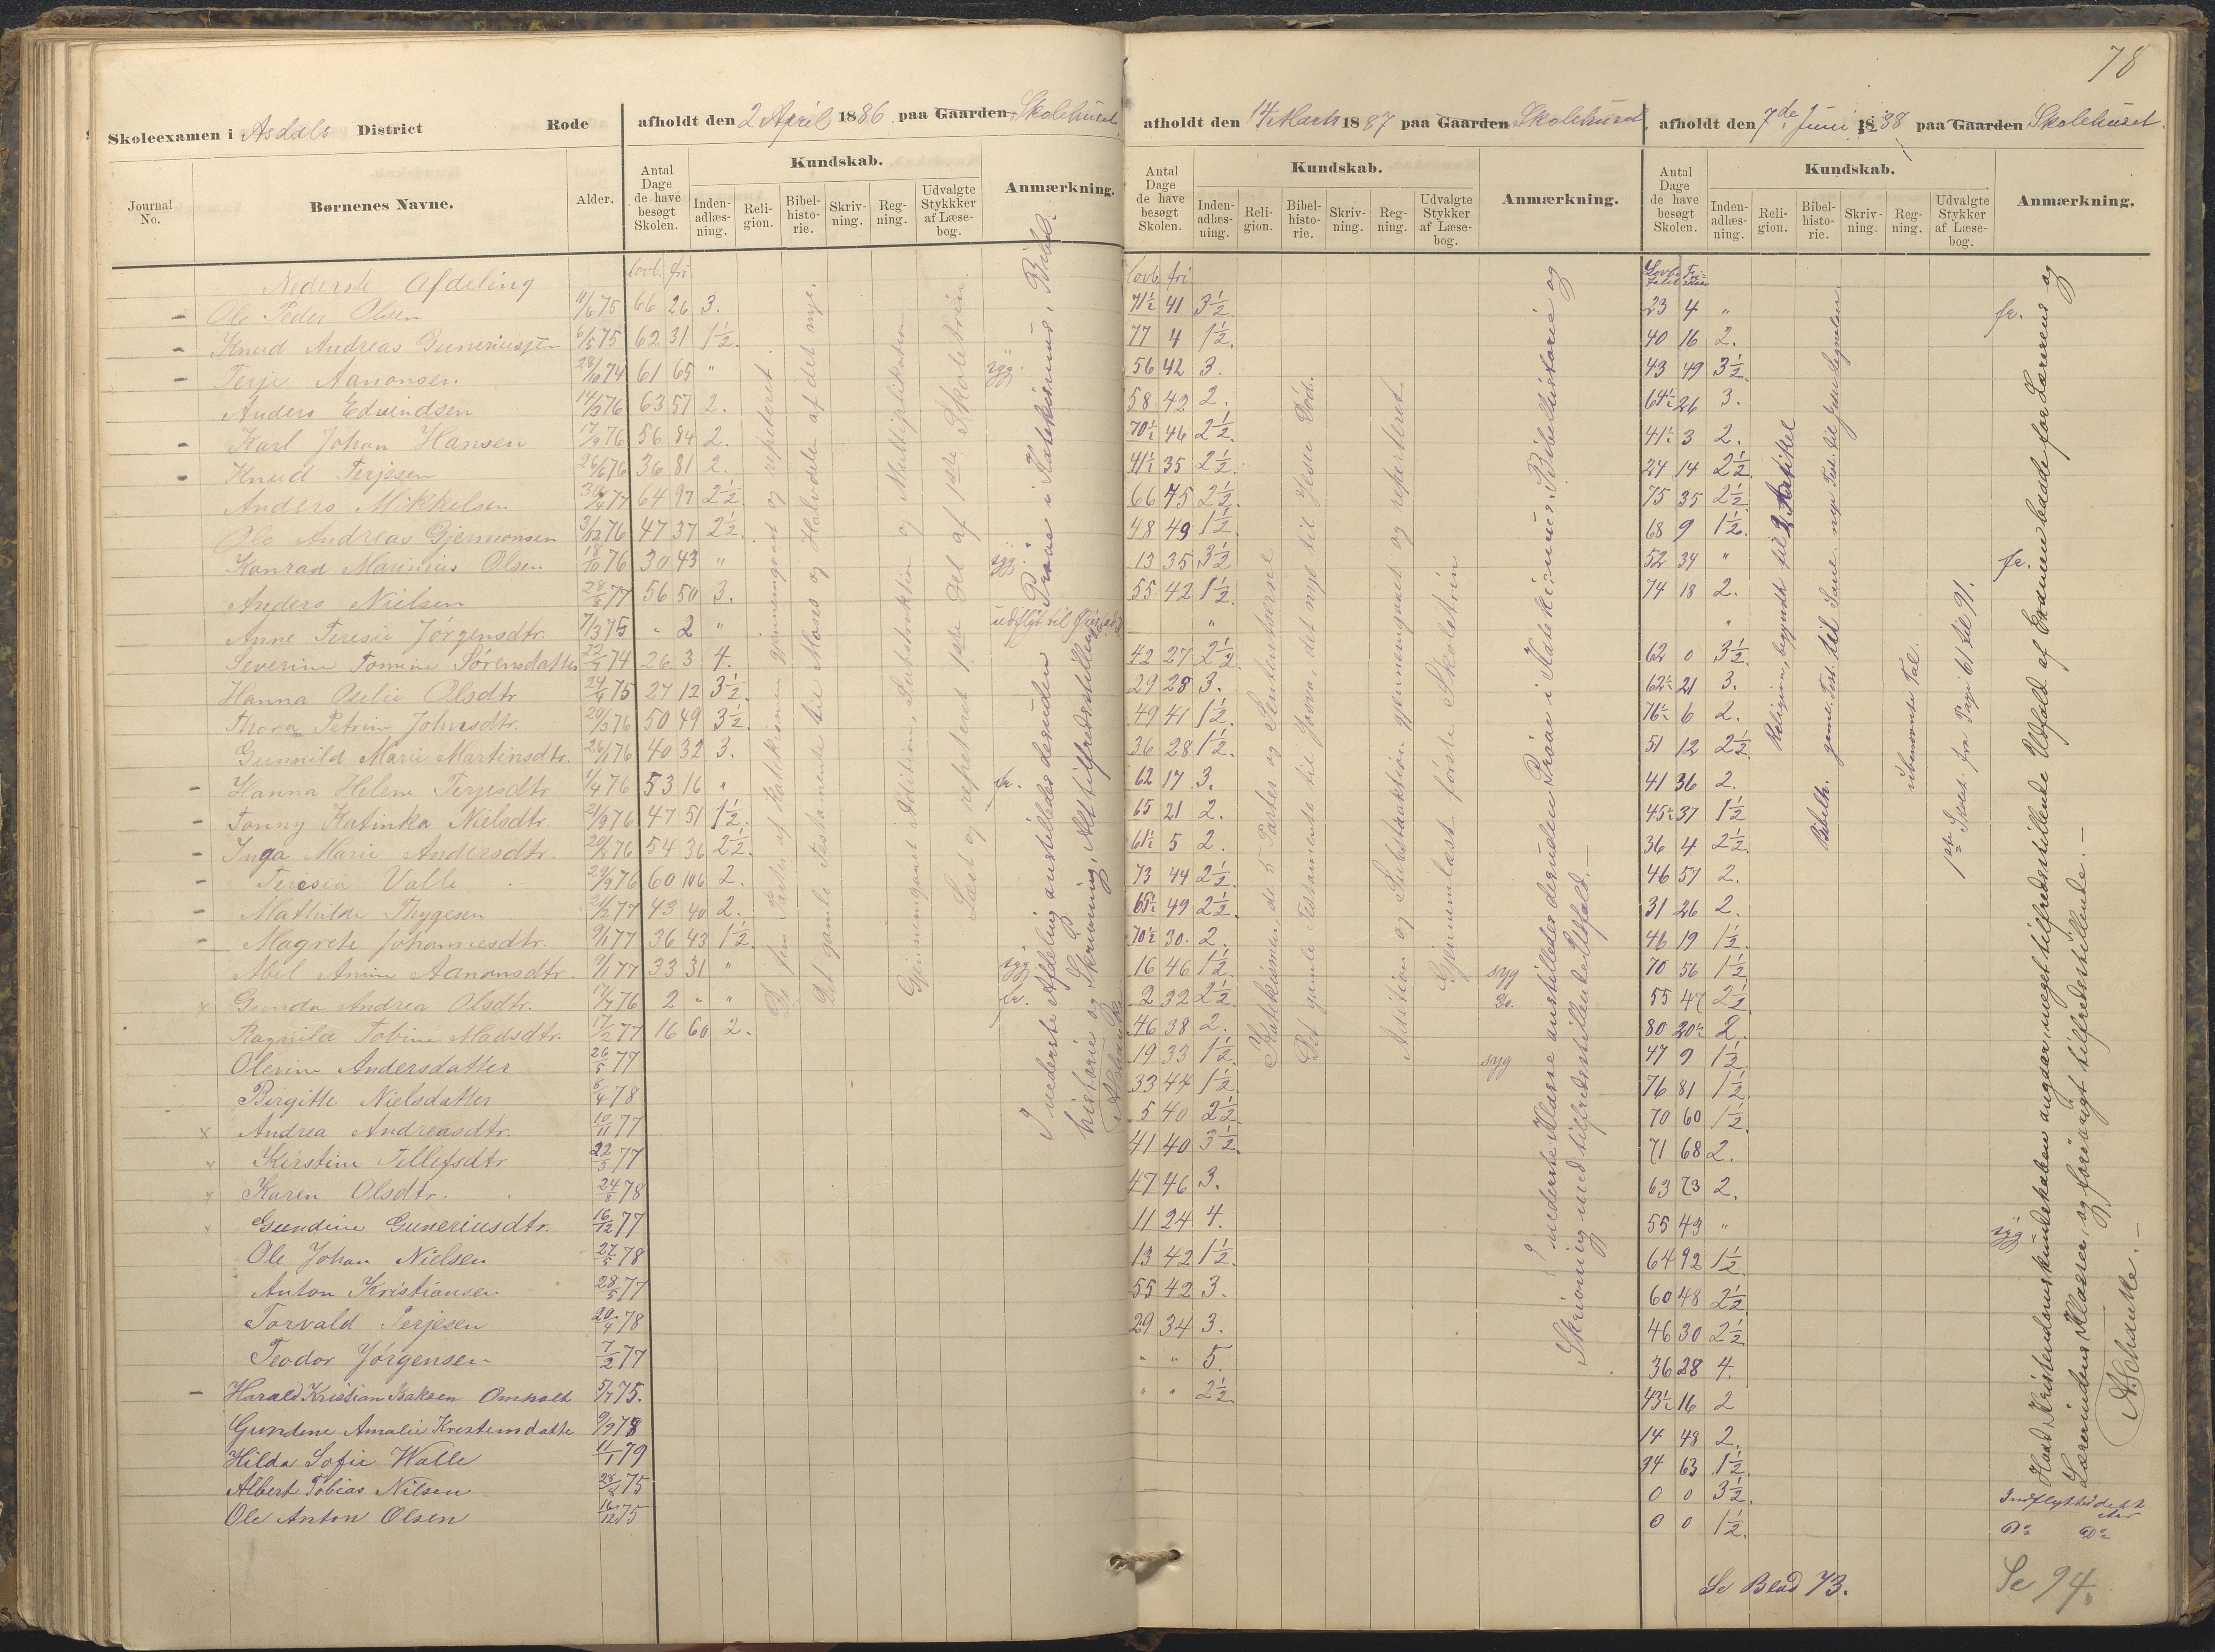 78
Skoleexamen i Asdals District Rode
afholdt den 2 April 1886 paa Gaarden Skolehuset
afholdt den 14 Marts 1887 paa Gaarden Skolehuset
afholdt den 7de Juni 1888 paa Gaarden Skolehuset.
Journal No. Børnenes Navne. Alder. Antal Dage de have besøgt Skolen. Kundskab. Inden-adlæs-ning. Reli-gion. Bibel-histo-rie. Skriv-ning. Reg-ning. Udvalgte Stykkker af Læse-bog. Anmærkning.
Antal Dage de have besøgt Skolen. Kundskab. Inden-adlæs-ning. Reli-gion. Bibel-histo-rie. Skriv-ning. Reg-ning. Udvalgte Stykker af Læse-bog. Anmærkning.
Antal Dage de have besøgt Skolen. Kundskab. Inden-adlæs-ning. Reli-gion. Bibel-histo-rie. Skriv-ning. Reg-ning. Udvalgte Stykker af Læse-bog. Anmærkning.
Nederste Afdeling lovb. fri lovb. fri
Ole Peder Olsen 11/6 75 66 26 3. 71½ 41 3½ 23 4 " fr.
Knud Andreas Guneriussen 6/5 75 62 31 1½. 77 4 1½ 40 16 2.
Terje Aanonsen 28/10 74 61 65 " syg. 56 42 3. 43 49 3½
Anders Edvindsen 14/3 76 63 57 2. 58 42 2. 64½ 26 3.
Karl Johan Hansen 17/9 76 56 84 2. 70½ 46 2½. 41½ 3 2.
Knud Terjesen 26/6 76 36 81 2. 41½ 35 2½. 24 14 2½
Anders Mikkelsen 77 64 97 2½ 66 75 2½ 75 35 2½
Ole Andreas Gjermonsen 3/12 76 47 37 2½. 48 49 1½ 68 9 1½.
Konrad Marinius Olsen 18/10 76 30 43 " syg. 13 35 3½ 52 34 " fr.
Anders Nielsen 28/8 77 56 50 3. 55 42 1½. 74 18 2.
Anne Teresie Jørgensdtr. 7/3 75 " 2 " udflyt til " "
Severine Tomine Sørensdatter 74 26 3 4. 42 27 2½ 62 0 3½
Hanna Oselie Olsdtr 24/6 75 27 12 3½. 29 28 3. 62½ 21 3.
Thora Petrine Johnsdtr. 20/3 76 50 49 3½. 49 41 1½. 76½ 6 2.
Gunnild Marie Martinsdtr. 76 40 32 3. 36 28 1½. 51 12 2½
Hanna Helene Terjesdtr 1/4 76 53 16 " fr. 62 17 3. 41 36 2.
Tonny Katinka Nielsdtr. 21/9 76 47 51 1½. 65 21 2. 45½ 37 1½
Inga Marie Andersdtr. 76 54 36 2½. 61½ 5 2. 36 4 2½.
Teresia Valle 29/9 76 60 106 2. 73 44 2½. 46 57 2.
Mathilde Thygesen 77 43 40 2. 65½ 49 2½. 31 26 2.
Magrete Johannesdtr. 9/1 77 36 43 1½. 70½ 30. 2. 46 19 1½.
Abel Anine Aanonsdtr. 9/1 77 33 31 " syg 16 46 1½. syg 70 56 1½
Gunda Andrea Olsdtr. 17/7 76 2 " " fr. 2 32 2½ Do. 55 47 2½
Ragnild Tobine Madsdtr. 17/2 77 16 60 2. 46 38 2. 80 20½ 2.
Olevine Andersdatter 26/5 77 19 33 1½. syg 47 9 1½.
Birgitte Nielsdatter 8/4 78 33 44 1½. 76 81 1½.
Andrea Andreasdtr. 10/11 77 5 40 2½ 70 60 1½.
Kirstine Tellefsdtr 22/3 77 41 40 3½. 71 68 2.
Karen Olsdtr. 24/8 78 47 46 3. 63 73 2.
Gundine Guneriusdtr. 16/12 77 11 24 4. 55 43 " syg
Ole Johan Nielsen 27/5 78 13 42 1½. 64 92 1½
Anton Kristiansen 28/5 77 55 42 3. 60 48 2½
Torvald Terjesen 20/4 78 29 34 3. 46 30 2½
Teodor Jørgensen 7/2 77 " " 5. 36 28 4.
Harald Kristian Isaksen Omholt 5/7 75. " " 2½ 43½ 16 2
Gundine Amalie Kristensdatte 9/9 78 14 48 2.
Hilda Sofie Walle 11/1 79 94 63 1½.
Albert Tobias Nilsen 28/8 75 0 0 3½. Indflyttede
Ole Anton Olsen 16/12 75 0 0 1½. Do Do
De fem Parter af Katekismen gjennemgaaet og repeteret.
Det gamle Testamente til Moses og Halvdelen af det nye.
Gjennemgaaet Addition, Subtraktion og Multiplikation
Læst og repeteret 1ste Del af 1ste Skoletrin
I nederste Afdeling anstilledes desuden Prøve i Katekismus, Bibelhistorie og Skrivning, Alt tilfredsstillende
Katekismen, de 5 Parter og Sententserne
Det gamle Testamente til Josva, det nye til Jesu Død.
Addition og Subtraktion gjennemgaaet og repeteret
Gjennemlæst første Skoletrin
I nederste Klasse anstilledes desuden Prøve i Katekismus, Bibelhistorie og
Skrivning med tilfredsstillende Udfald. —
Religion, begyndt til 2 Artikel
Bibelh. gamle Test. til Saul. nye Test. til Lignelser
ubenævnte Tal.
1ste Skolet. fra Page 61 til 91.
Hvad Kristendomskundskaben angaar, meget tilfredsstillende Udfald af Examen baade for Lærerens og
Lærerindens Klasser, og forøvrigt tilfredsstillende. —
A. Schanke. —
Se Blad 73.
Se 94.